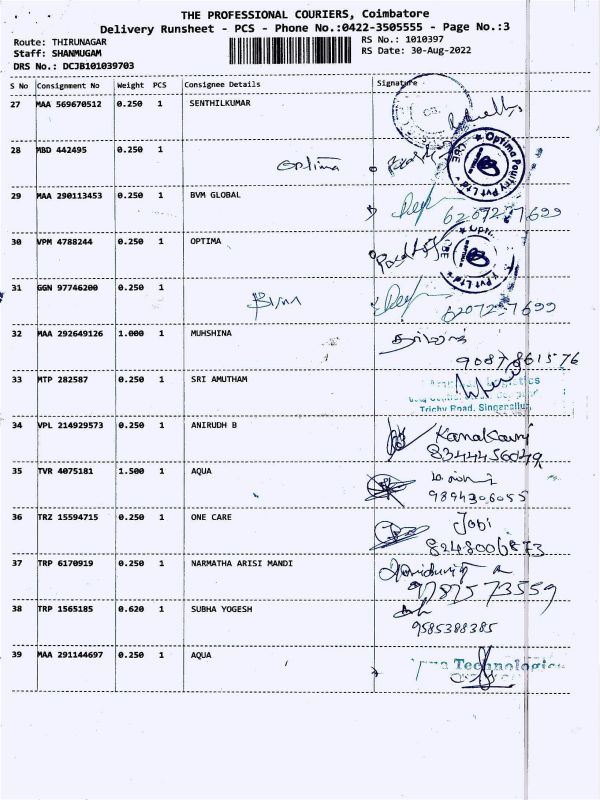 THE PROFESSIONAL COURIERS, Coimbatore
Delivery Runsheet - PCS - Phone No.:0422-3505555 - Page No.:3
Route: THIRUNAGAR
Staff: SHANMUGAM
DRS No.: DCJB101039703
RS No.: 1010397
RS Date: 30-Aug-2022
S No Consignment No Weight PCS Consignee Details Signature
27 MAA 569670512 0.250 1 SENTHILKUMAR
28 MBD 442495 0.250 1 Optima
Optima Poultry Pvt Ltd CBE
29 MAA 290113453 0.250 1 BVM GLOBAL
30 VPM 4788244 0.250 1 OPTIMA
31 GGN 97746200 0.250 1
32 MAA 292649126 1.000 1 MUHSHINA
9087861576
33 MTP 282587 0.250 1 SRI AMUTHAM
Trichy Road, Singanallur
34 VPL 214929573 0.250 1 ANIRUDH B
8344456049
35 TVR 4075181 1.500 1 AQUA
9894306055
36 TRZ 15594715 0.250 1 ONE CARE
Jobi
8248006873
37 TRP 6170919 0.250 1 NARMATHA ARISI MANDI
9787573559
38 TRP 1565185 0.620 1 SUBHA YOGESH
9585388385
39 MAA 291144697 0.250 1 AQUA
Technologies